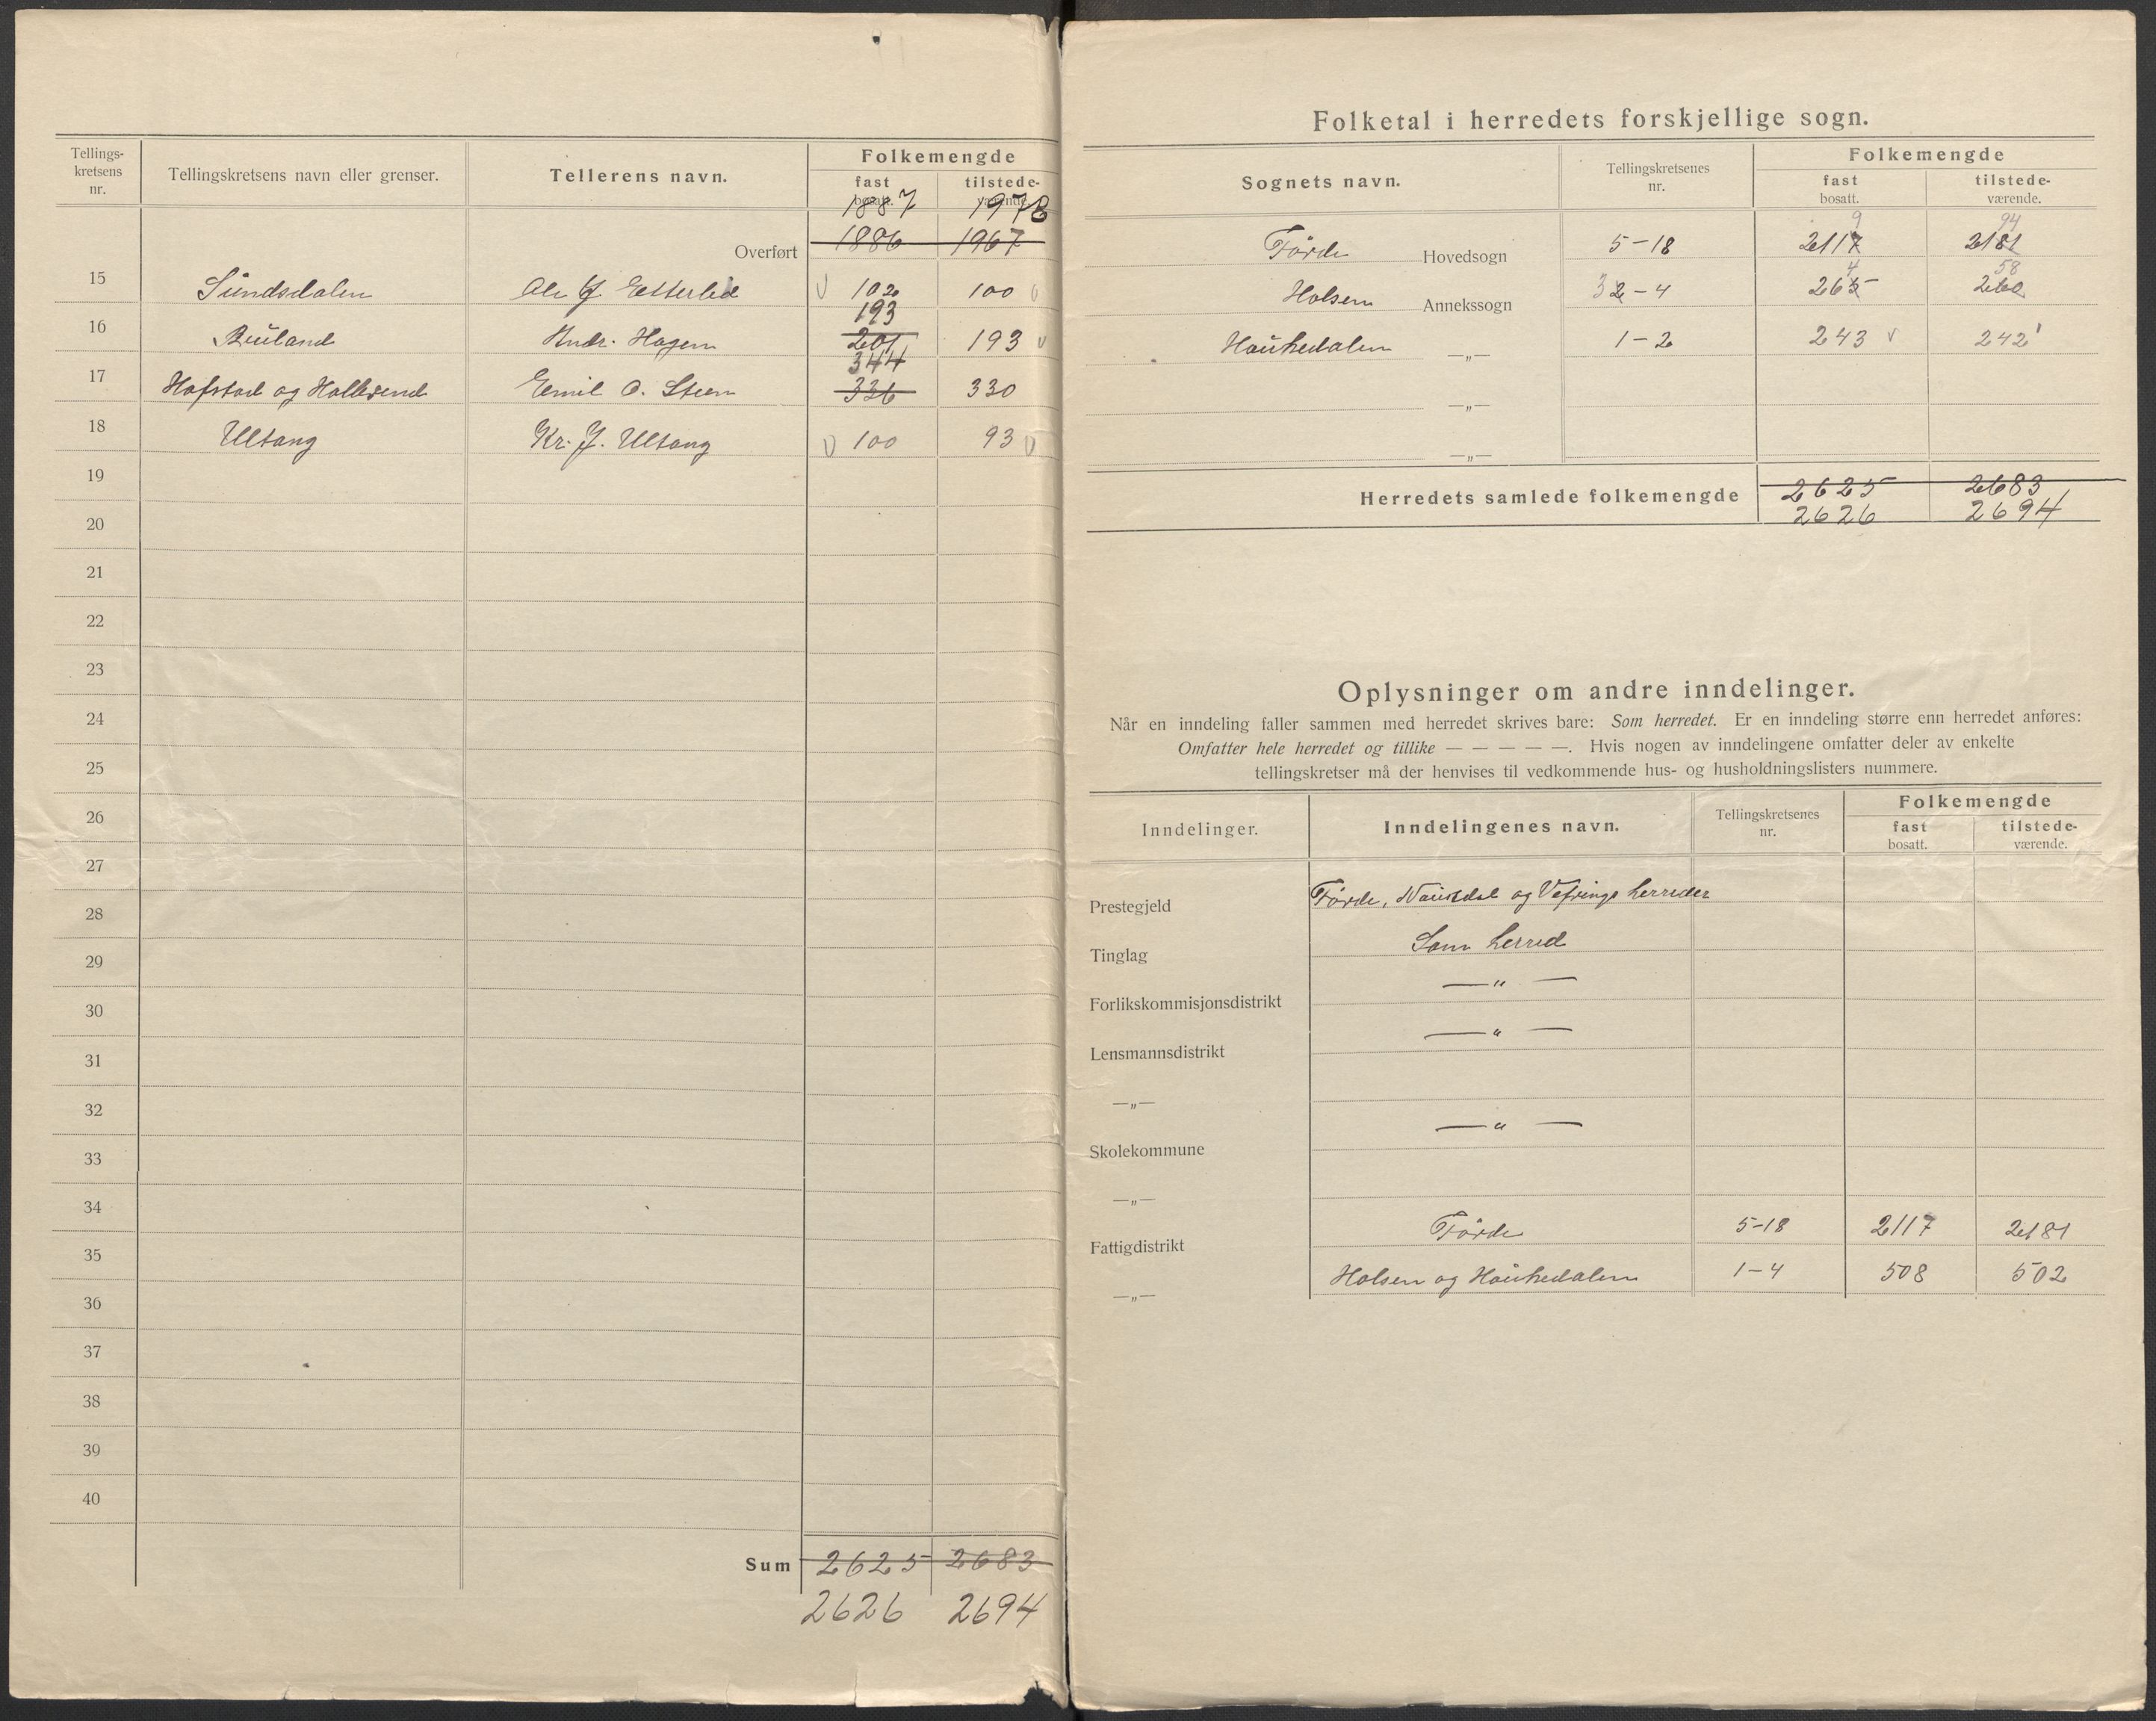 Tellings-
kretsens
nr.
Tellingskretsens navn eller grenser.
Tellerens navn.
Folkemengde
fast
bosatt.
tilstede-
værende.
1887 1978
Overført 1886 1967
15 Sundsdalen Ole J. Etterlid 102 100
193
16 Ruland Andr. Hagen 201 193
344
17 Hafstad og Halbrend Emil O. Steen 336 330
18 Ultang Kr. J. Ultang 100 93
19
20
21
22
23
24
25
26
27
28
29
30
31
32
33
34
35
36
37
38
39
40
Sum 2625 2683
2626 2694
Folketal i herredets forskjellige sogn.
Sognets navn.
Tellingskretsenes
nr.
Folkemengde
fast
bosatt.
tilstede-
værende.
9 94
Førde Hovedsogn 5-18 2117 2181
4 58
Holsen Annekssogn 3 2-4 265 260
Haukedalen —„— 1-2 243 242
—„—
—„—
Herredets samlede folkemengde 2625 2683
2626 2694
Oplysninger om andre inndelinger.
Når en inndeling faller sammen med herredet skrives bare: Som herredet. Er en inndeling større enn herredet anføres:
Omfatter hele herredet og tillike — — — — —. Hvis nogen av inndelingene omfatter deler av enkelte
tellingskretser må der henvises til vedkommende hus- og husholdningslisters nummere.
Inndelinger.
Inndelingenes navn.
Tellingskretsenes
nr.
Folkemengde
fast
bosatt.
tilstede-
værende.
Prestegjeld Førde, Naustdal og Vefrings herreder
Tinglag Som herred
Forlikskommisjonsdistrikt — „ —
Lensmannsdistrikt — „ —
—„—
Skolekommune — „ —
—„—
Fattigdistrikt Førde 5-18 2117 2181
—„— Holsen og Haukedalen 1-4 508 502